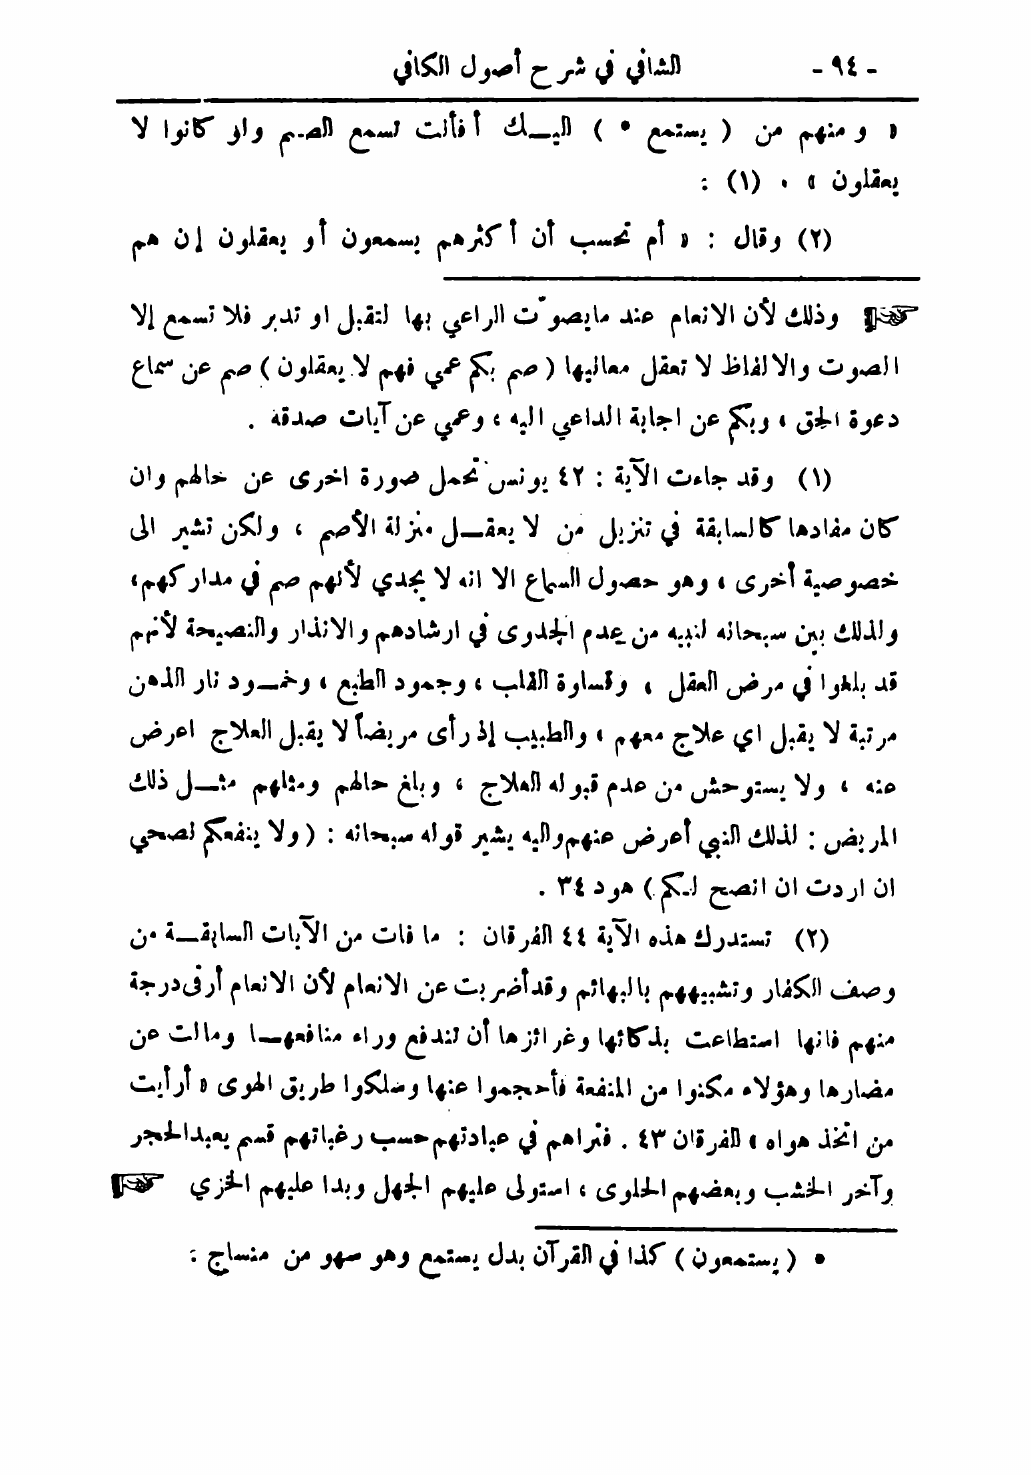 - ٩٤ - الشافي في شرح أصول الكافي
« ومنهم من ( يستمع * ) اليـــك أفأنت تسمع الصم ولو كانوا لا
يعقلون » . (١) :
(٢) وقال : « أم تحسب أن أكثرهم يسمعون أو يعقلون إن هم
وذلك لأن الانعام عند مايصوّت الراعي بها لتقبل او تدبر فلا تسمع إلا
الصوت والالفاظ لا تعقل معانيها ( صم بكم عمي فهم لا يعقلون ) صم عن سماع
دعوة الحق ، وبكم عن اجابة الداعي اليه ، وعمي عن آيات صدقه .
(١) وقد جاءت الآية : ٤٢ يونس تحمل صورة اخرى عن حالهم وان
كان مفادها كالسابقة في تنزيل من لا يعقـــل منزلة الأصم ، ولكن تشير الى
خصوصية أخرى ، وهو حصول السماع الا انه لا يجدي لأنهم صم في مداركهم،
ولذلك بين سبحانه لنبيه من عدم الجدوى في ارشادهم والانذار والنصيحة لأنهم
قد بلغوا في مرض العقل ، وقساوة القلب ، وجمود الطبع ، وخمـــود نار الذهن
مرتبة لا يقبل اي علاج معهم ، والطبيب إذ رأى مريضاً لا يقبل العلاج اعرض
عنه ، ولا يستوحش من عدم قبوله العلاج ، وبلغ حالهم ومثلهم مثـــل ذلك
المريض : لذلك النبي أعرض عنهم واليه يشير قوله سبحانه : ( ولا ينفعكم نصحي
ان اردت ان انصح لـكم ) هود ٣٤ .
(٢) تستدرك هذه الآية ٤٤ الفرقان : ما فات من الآيات السابقـــة من
وصف الكفار وتشبيههم بالبهائم وقد أضربت عن الانعام لأن الانعام أرقى درجة
منهم فانها استطاعت بذكائها وغرائزها أن تندفع وراء منافعهـــا ومالت عن
مضارها وهؤلاء مكنوا من المنفعة فأحجموا عنها وسلكوا طريق الهوى « أرأيت
من اتخذ هواه » الفرقان ٤٣ . فتراهم في عبادتهم حسب رغباتهم قسم يعبد الحجر
وآخر الخشب وبعضهم الحلوى ، استولى عليهم الجهل وبدا عليهم الخزي
* ( يستمعون ) كذا في القرآن بدل يستمع وهو سهو من منساج :